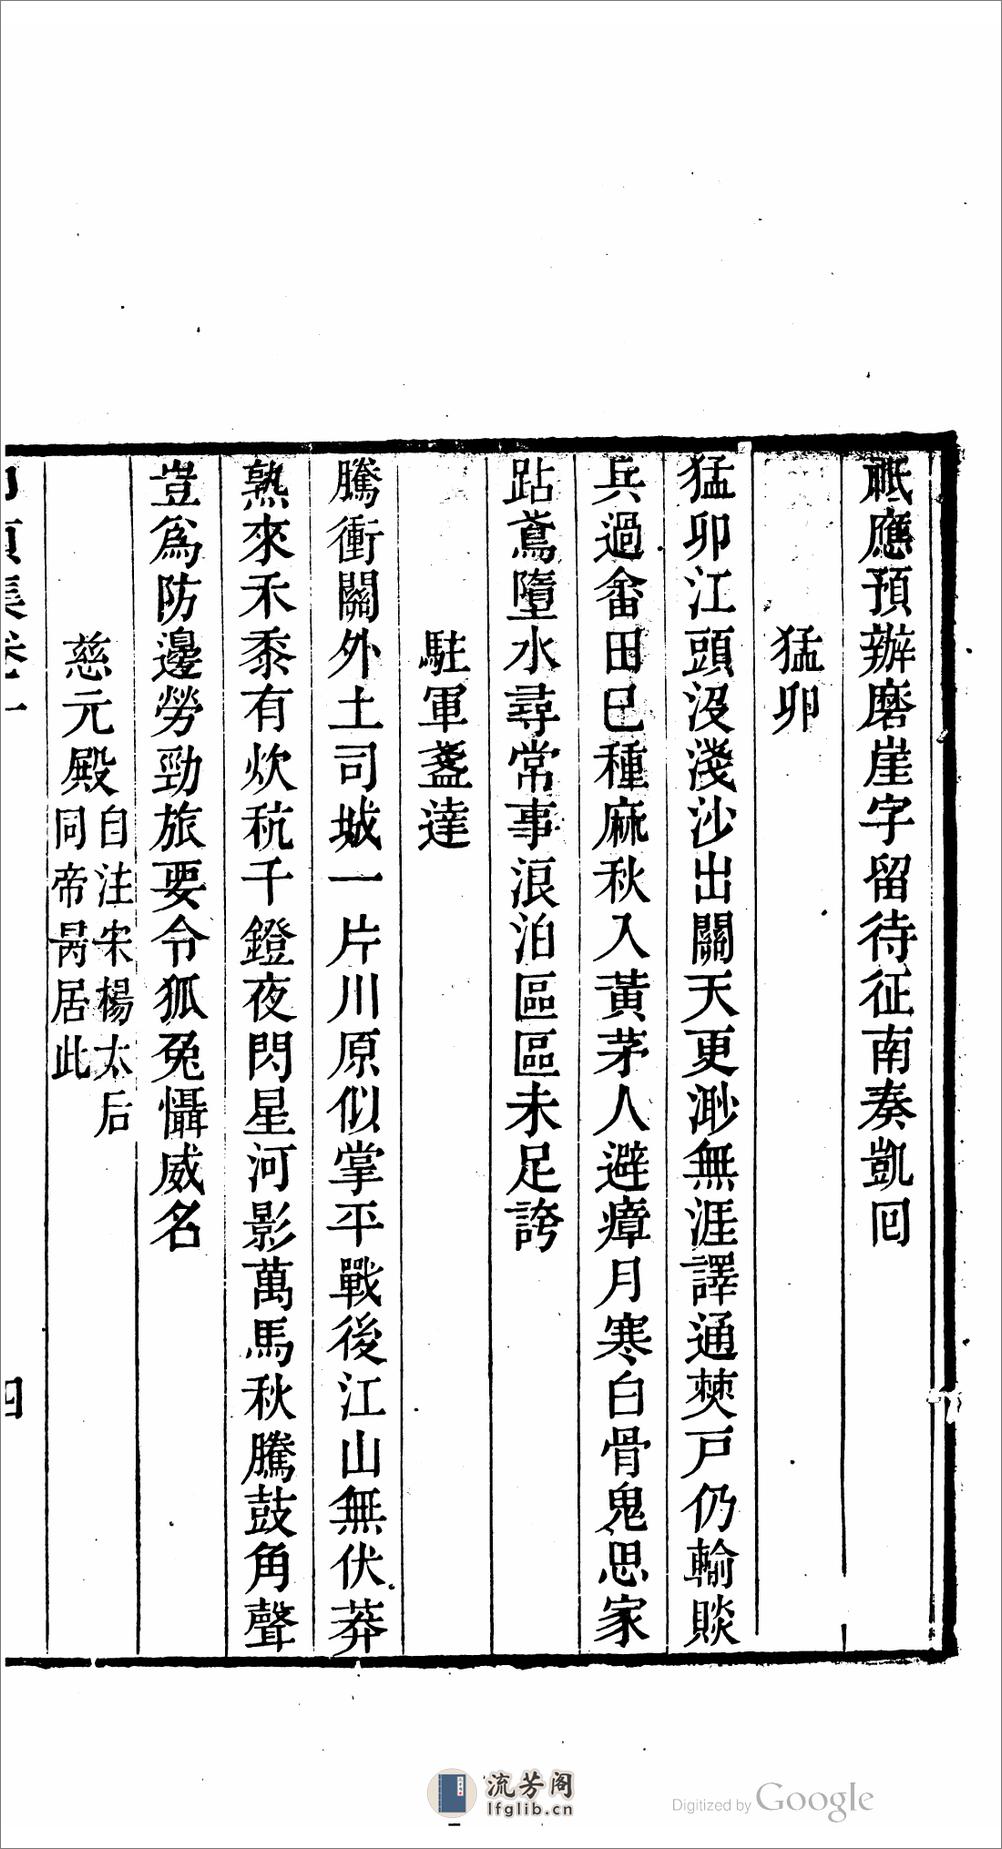 祗應預辦磨崖字留待征南奏凱囘
猛卯
猛卯江頭沒淺沙出關天更渺無涯譯通僰戸仍輸賧
兵過畬田已種麻秋入黃茅人避瘴月寒白骨鬼思家
跕鳶墮水尋常事浪泊區區未足誇
駐軍盞達
騰衝關外土司城一片川原似掌平戰後江山無伏莽
熟來禾黍有炊秔千鐙夜閃星河影萬馬秋騰鼓角聲
豈爲防邊勞勁旅要令狐兔懾威名
慈元殿自注宋楊太后
同帝昺居此
集卷一
四
流芳阁
lfglib.cn
Digitized by Google